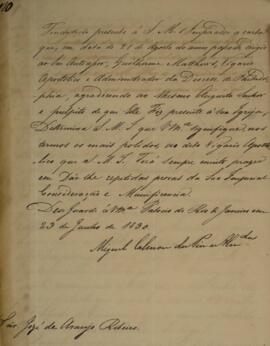 Tendo sido presente á S. M. o Imperador a carta
que, em data de 21 de Agosto do anno passado dirigio
ao Seu Antecessor, Guilherme Matthews, Vigario
Apostolico e Administrador da Diocese de Philadel-
phia, agradecendo ao Mesmo Augusto Senhor
pulpito de que lhe Fez presente á sua Igreja,
Determina S. M. I. que V. M.ce signifique, nos
termos os mais polidos, ao dito Vigario Aposto-
lico que S. M. I. Terá sempre muito prazer
em Dar-lhe repetidas provas da Sua Imperial
Consideração e Munificencia.
Deos Guarde a V. M.ce Palacio do Rio de Janeiro em
23 de Junho de 1830.
Miguel Calmon du Pin e Almeida
Snr. José de Araujo Ribeiro.